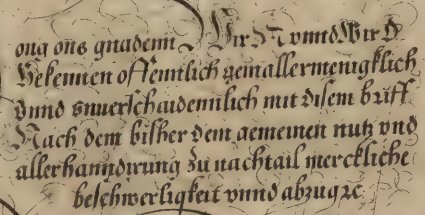 ons ons gnadenn Wir N vnnd Wir D
Bekennen offenntlich gein allermenigklich
Vnnd vnuerschaidennlich mit disem briff
Nach dem bisher dem gemeinen nutz vnd
allerhanndirung zu nachtail merckliche
beschwerligkeit vnnd abzug ꝛc